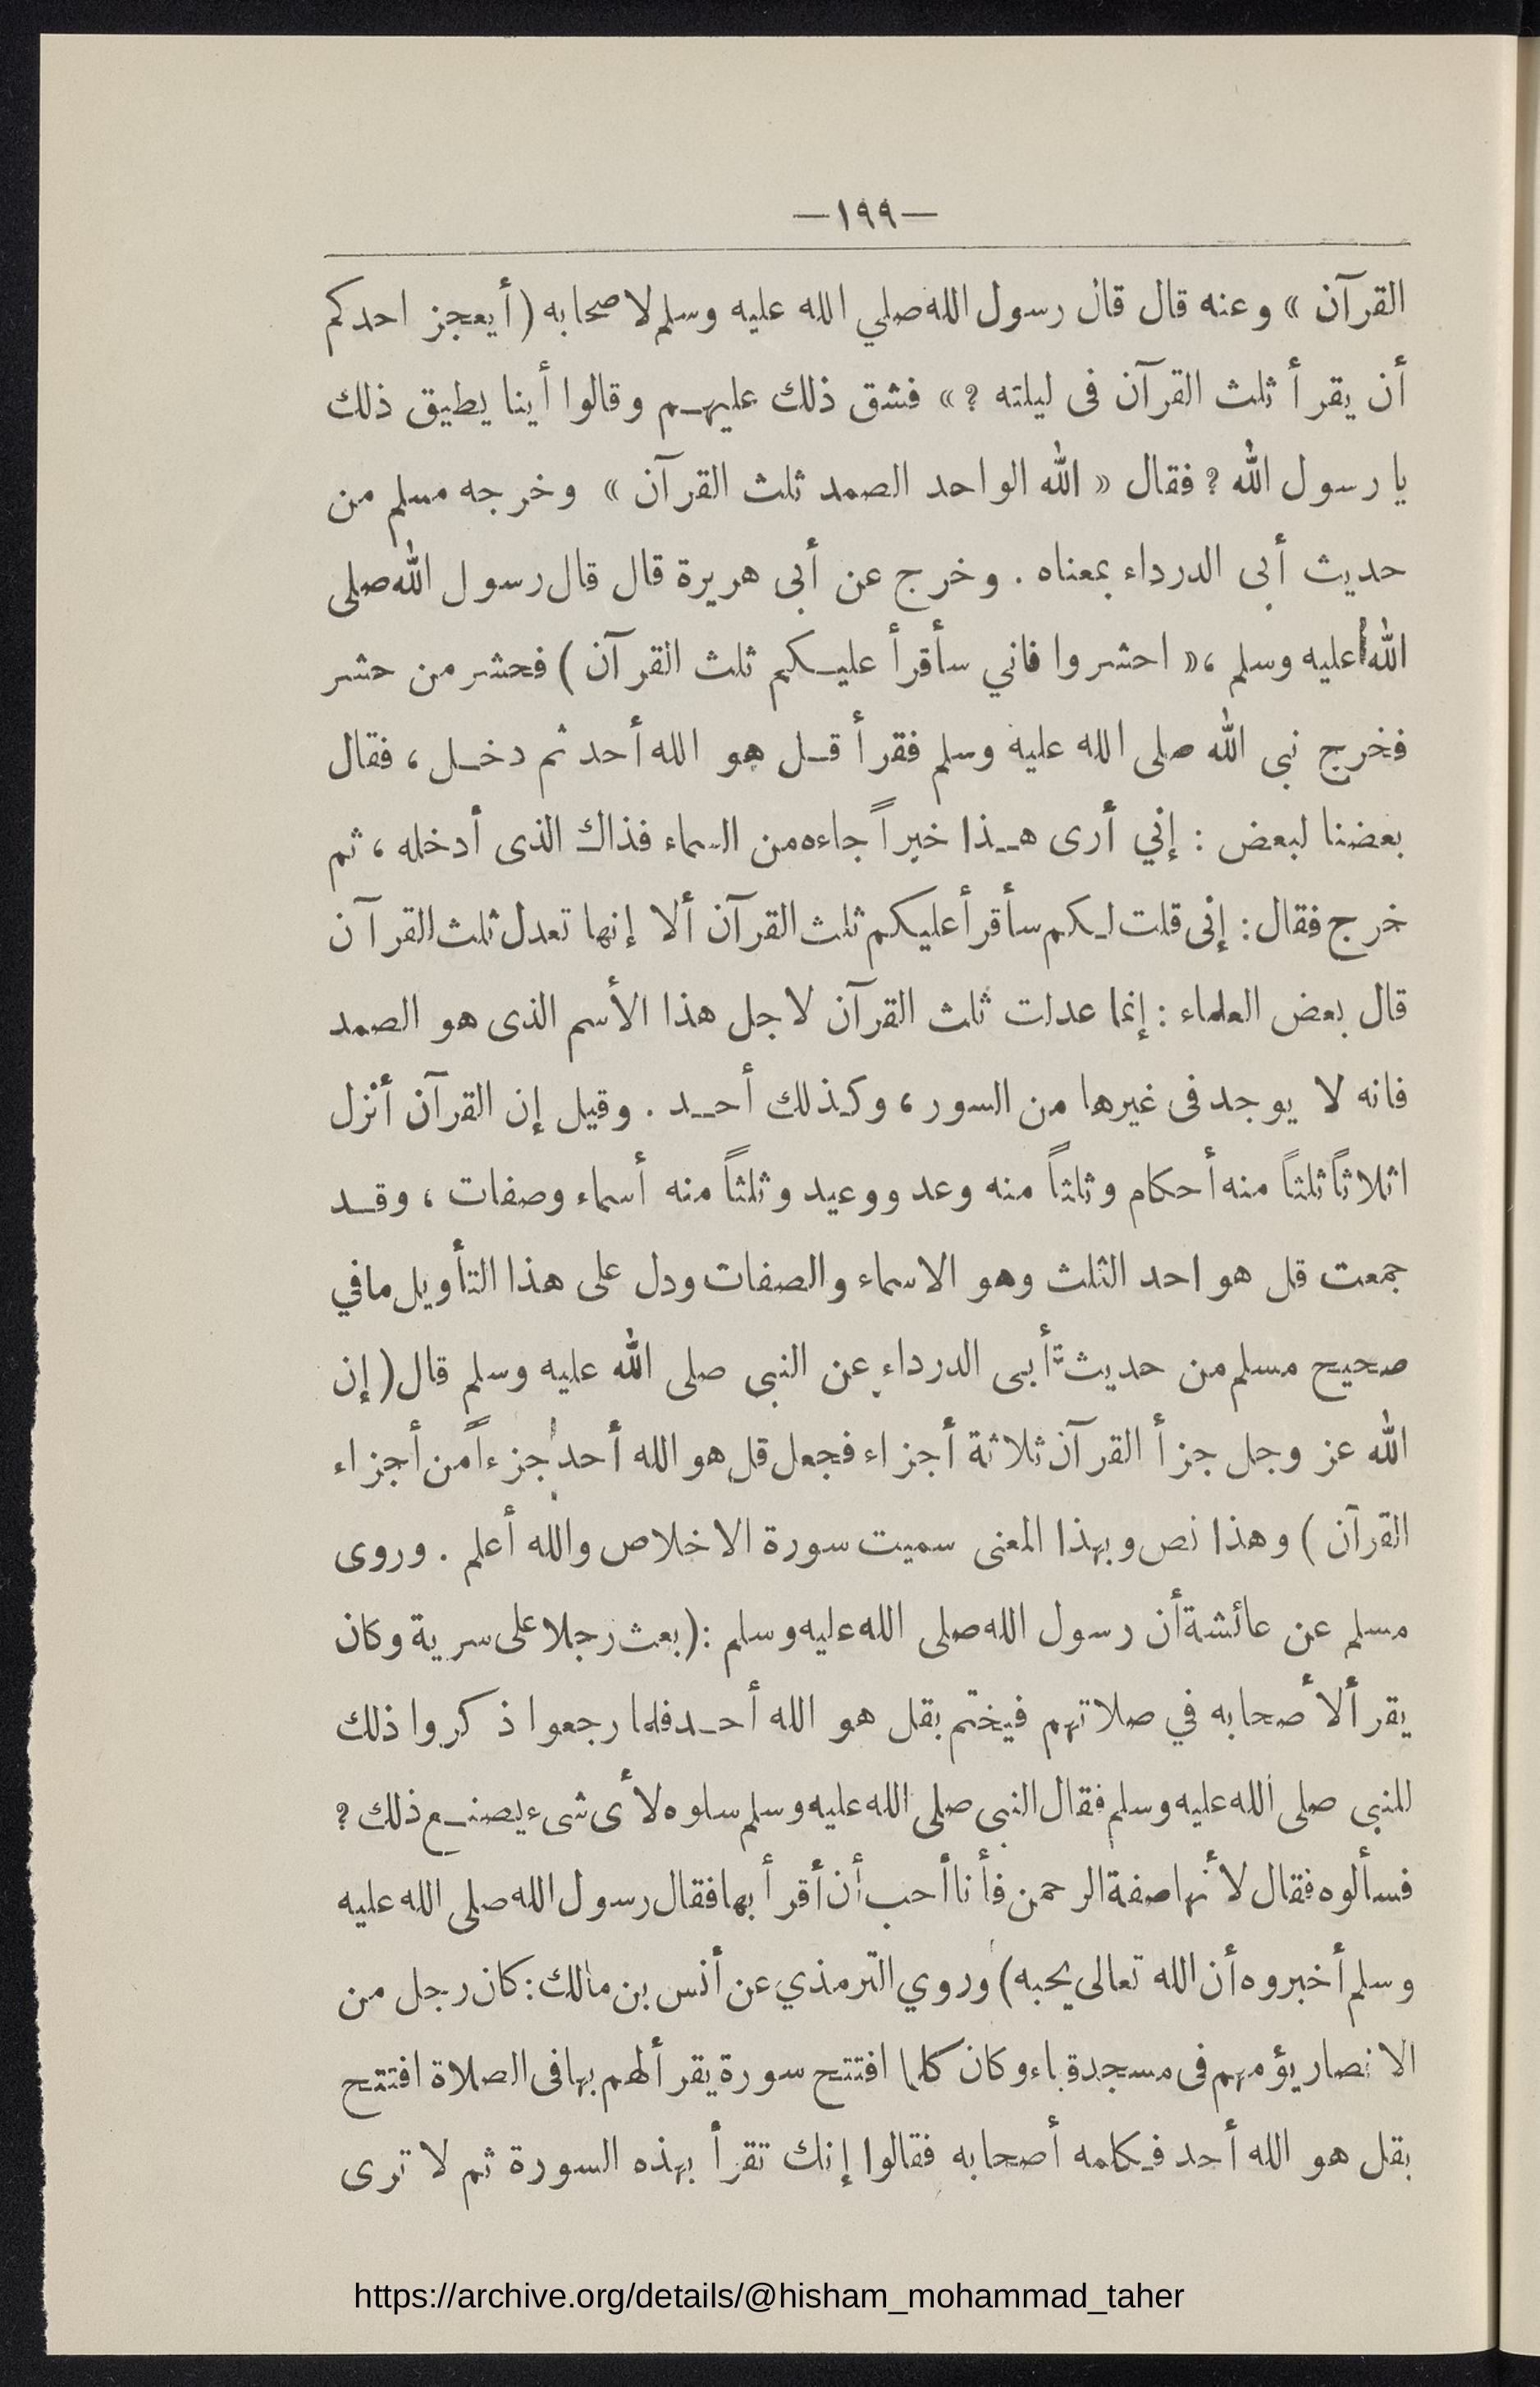 —١٩٩—
القرآن » وعنه قال قال رسول الله صلي الله عليه وسلم لاصحابه ( أيعجز احدكم
أن يقرأ ثلث القرآن فى ليلته ? » فشق ذلك عليهـم وقالوا أينا يطيق ذلك
يا رسول الله ? فقال « الله الواحد الصمد ثلث القرآن » وخرجه مسلم من
حديث أبى الدرداء بمعناه . وخرج عن أبى هريرة قال قال رسول الله صلى
الله عليه وسلم ،« احشروا فاني سأقرأ عليـكم ثلث القرآن ) فحشر من حشر
فخرج نبى الله صلى الله عليه وسلم فقرأ قـل هو الله أحد ثم دخـل ، فقال
بعضنا لبعض : إني أرى هـذا خبراً جاءه من السماء فذاك الذى أدخله ، ثم
خرج فقال : إنى قلت لـكم سأقرأ عليكم ثلث القرآن ألا إنها تعدل ثلث القرآن
قال بعض العلماء : إنما عدلت ثلث القرآن لاجل هذا الأسم الذى هو الصمد
فانه لا يوجد فى غيرها من السور ، وكـذلك أحـد . وقيل إن القرآن أنزل
اثلاثاً ثلثاً منه أحكام وثلثاً منه وعد ووعيد وثلثاً منه أسماء وصفات ، وقـد
جمعت قل هو احد الثلث وهو الاسماء والصفات ودل على هذا التأويل مافي
صحيح مسلم من حديث أبى الدرداء عن النبى صلى الله عليه وسلم قال ( إن
الله عز وجل جزأ القرآن ثلاثة أجزاء فجعل قل هو الله أحد جزءاً من أجزاء
القرآن ) وهذا نص وبهذا المعنى سميت سورة الاخلاص والله أعلم . وروى
مسلم عن عائشة أن رسول الله صلى الله عليه وسلم : ( بعث رجلا على سرية وكان
يقرأ لأصحابه في صلاتهم فيختم بقل هو الله أحـد فلما رجعوا ذكروا ذلك
للنبى صلى الله عليه وسلم فقال النبى صلى الله عليه وسلم سلوه لأى شىء يصنـع ذلك ?
فسألوه فقال لأنها صفة الرحمن فأنا أحب أن أقرأ بها فقال رسول الله صلى الله عليه
وسلم أخبروه أن الله تعالى يحبه ) وروي الترمذي عن أنس بن مالك : كان رجل من
الانصار يؤمهم فى مسجد قباء وكان كلما افتتح سورة يقرأ لهم بها فى الصلاة افتتح
بقل هو الله أحد فـكلمه أصحابه فقالوا إنك تقرأ بهذه السورة ثم لا ترى
https://archive.org/details/@hisham_mohammad_taher